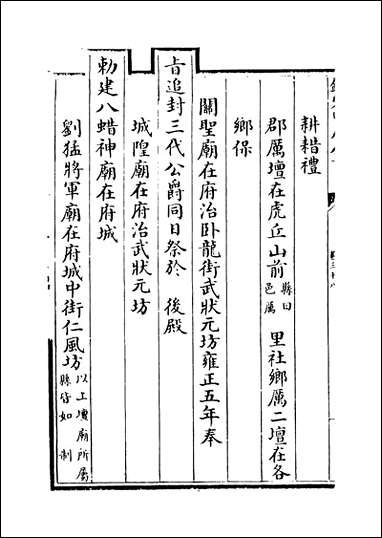 耕耤禮
郡厲壇在虎丘山前縣曰邑厲 里社鄉厲二壇在各
鄉保
關聖廟在府治卧龍街武狀元坊雍正五年奉
旨追封三代公爵同日祭於 後殿
城隍廟在府治武狀元坊
勅建八蜡神廟在府城
劉猛將軍廟在府城中街仁風坊以上壇廟所屬縣皆如制